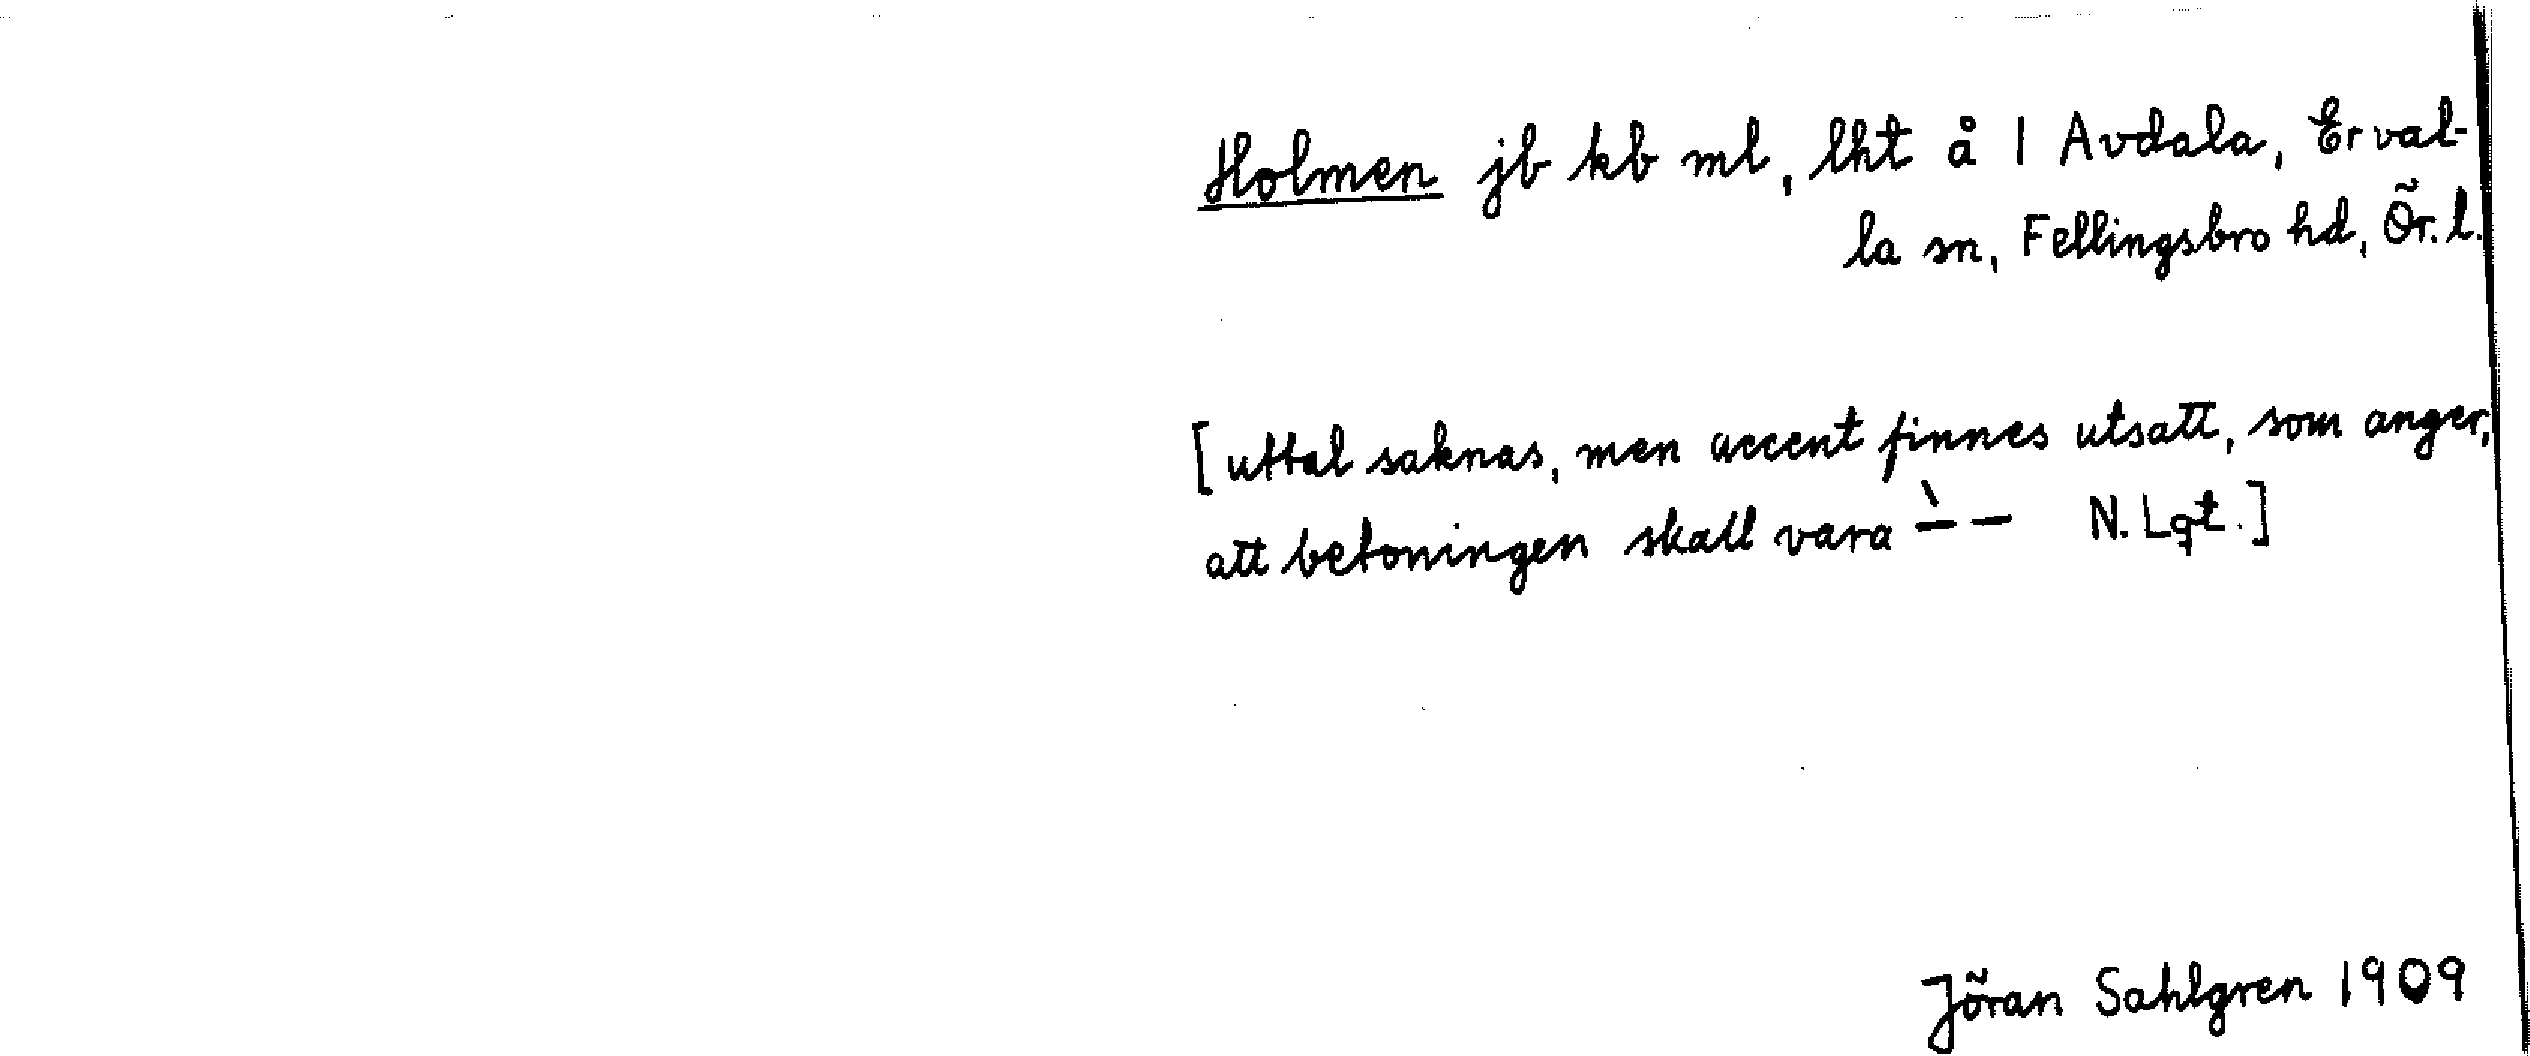 Holmen jb kb ml, lht å 1 Avdala, Erval-
la sn, Fellingsbro hd, Ör. l.
[uttal saknas, men accent finnes utsatt, som anger,
att betoningen skall vara –̀ – N. Lqt.]
Jöran Sahlgren 1909